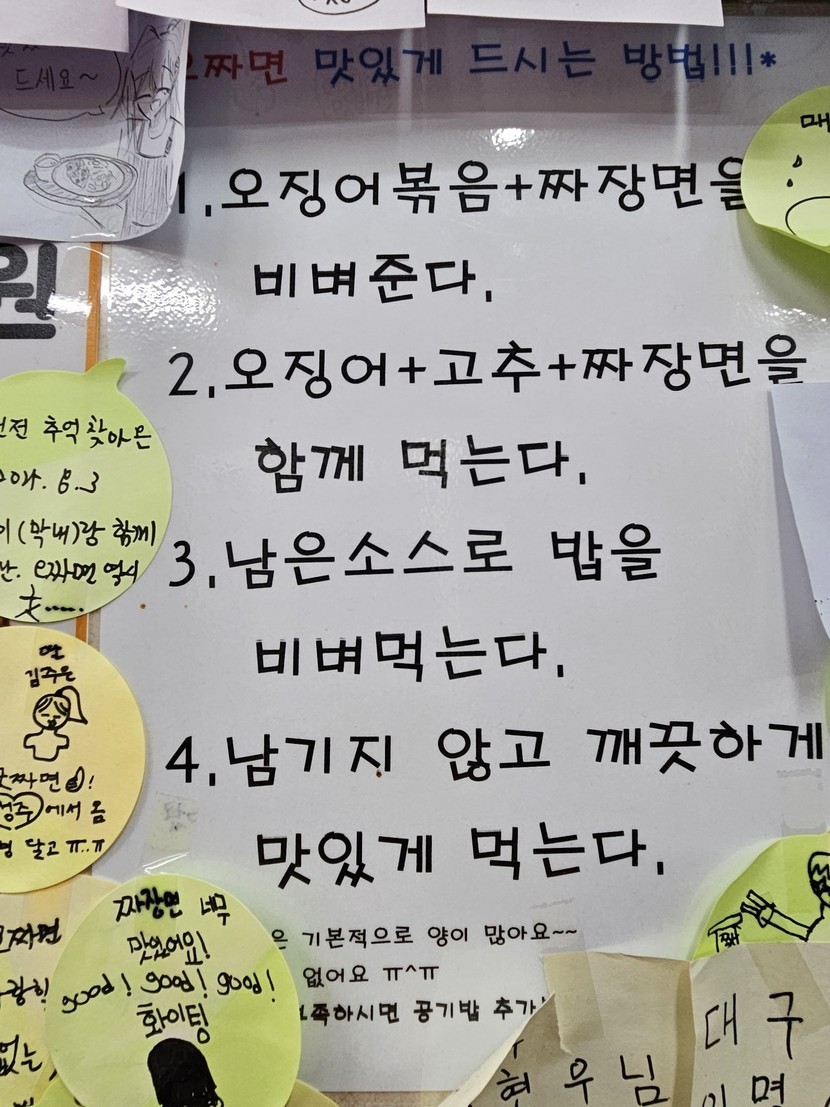 드세요~
오짜면 맛있게 드시는 방법!!!*
매
1.오징어볶음+짜장면을
비벼준다.
원
2.오징어+고추+짜장면을
함께 먹는다.
추억 찾아온
8.3
이(막내)랑 함께
오짜면 역시
3.남은소스로 밥을
비벼먹는다.
김주은
짜면
에서 옴
달고 ㅠ.ㅠ
4.남기지 않고 깨끗하게
맛있게 먹는다.
은 기본적으로 양이 많아요~~
없어요 ㅠ^ㅠ
족하시면 공기밥 추가
짜장면 너무
맛있어요!
good! good! good!
화이팅
짜면
없는
짜
대구
현우님